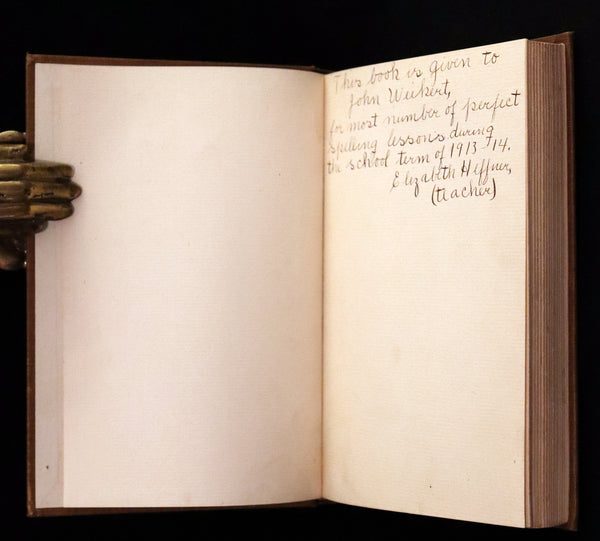 This book is given to
John Weikert,
for most number of perfect
spelling lessons during
the school term of 1913-14.
Elizabeth Heffner,
(teacher)